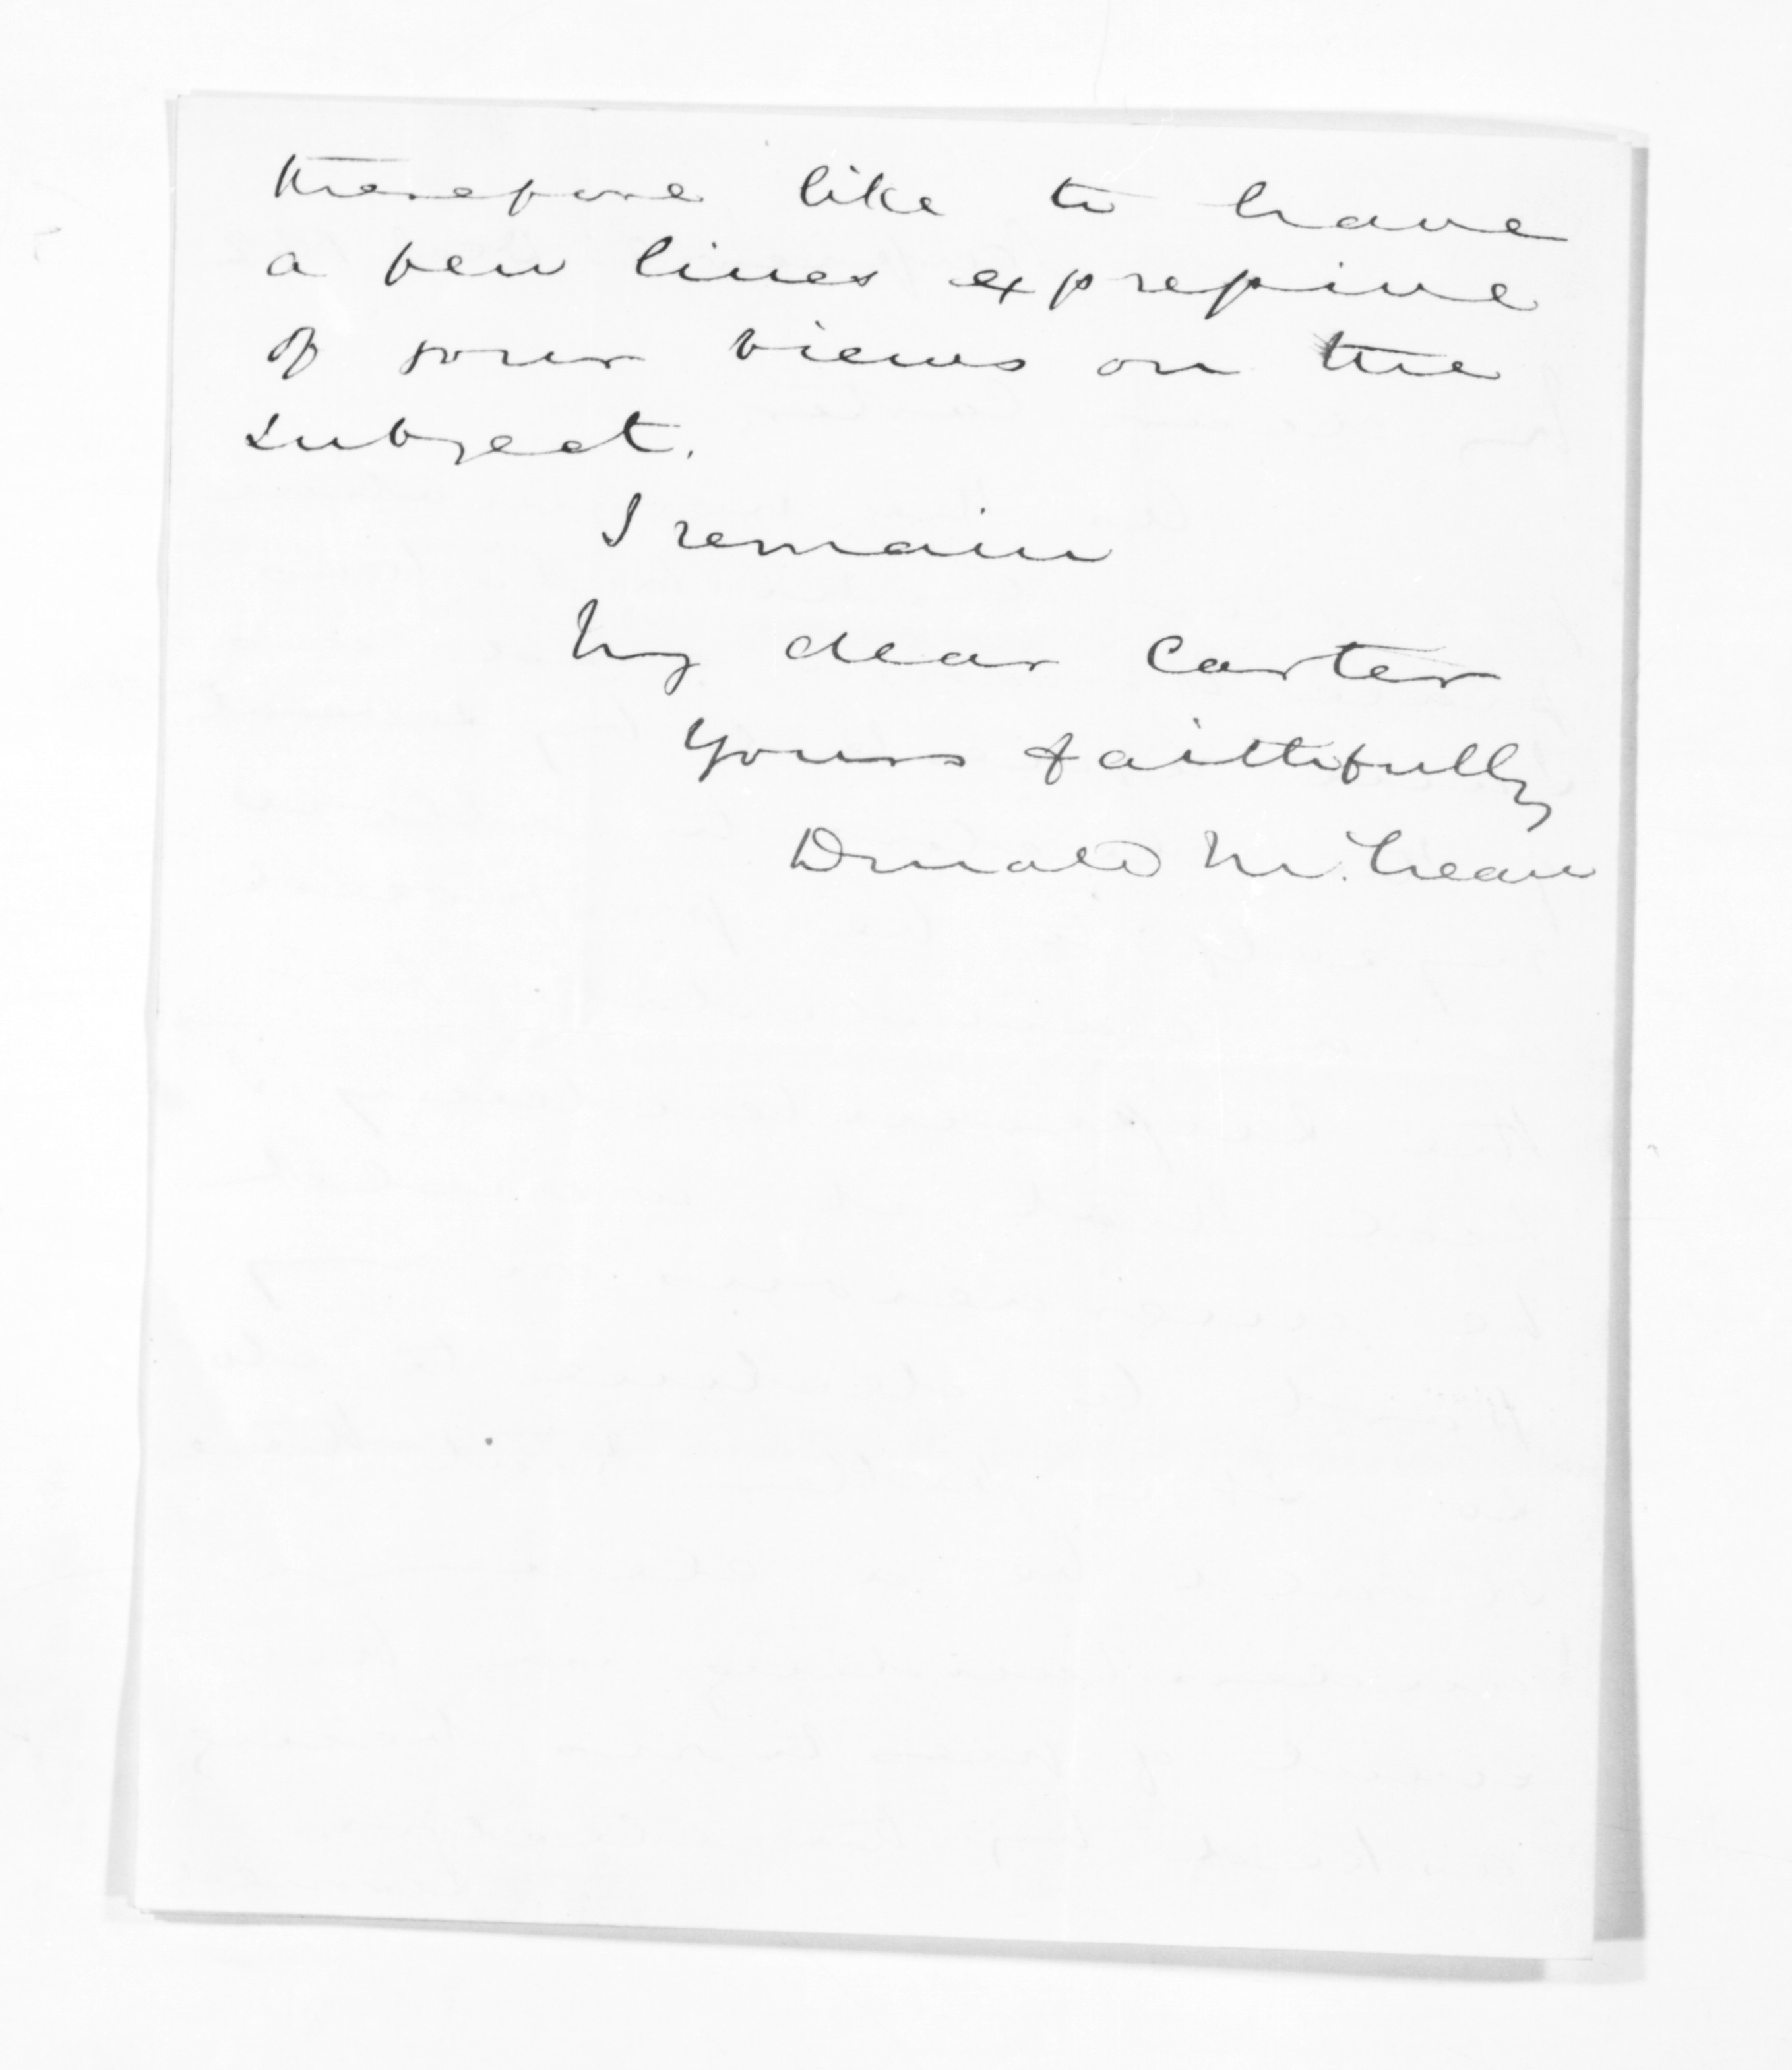 therefore like to have
a few lines expressive
of your views on the
subject.
I remain
My dear Carter
Yours faithfully
Donald McLean